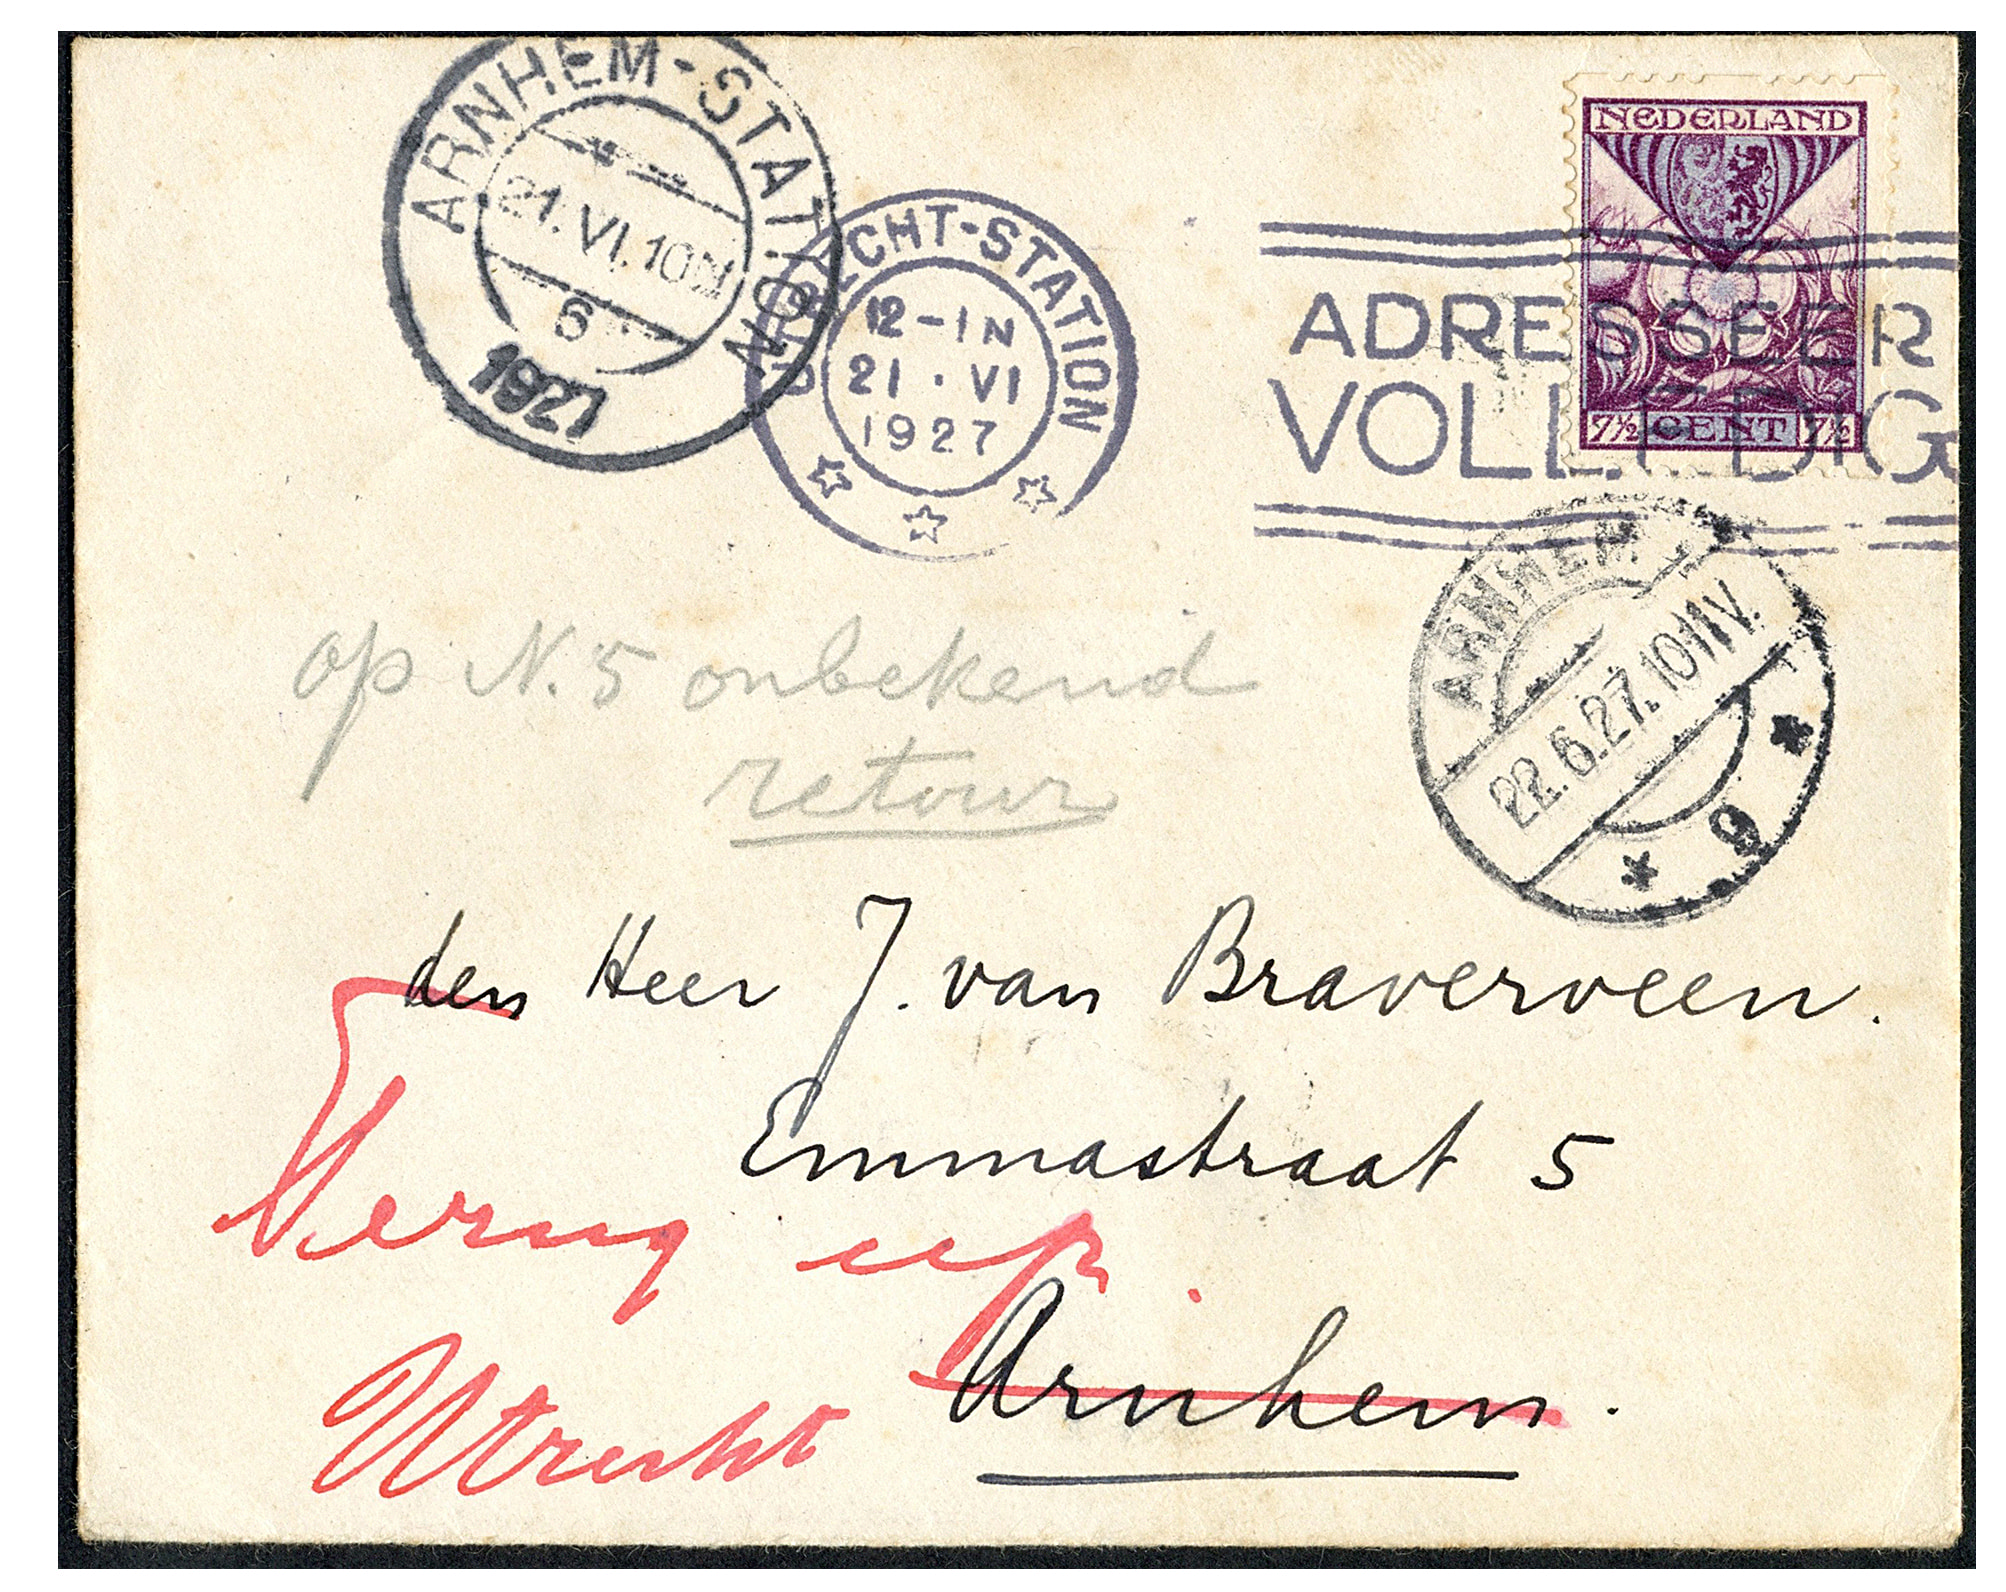 ARNHEM-STATION
21.VI.10N
6
1927
UTRECHT-STATION
12-1N
21.VI
1927
NEDERLAND
7½ CENT 7½
ADRESSEER
VOLLEDIG
ARNHEM
22.6.27.10-11V.
9
op N. 5 onbekend
retour
den Heer J. van Braverveen.
Emmastraat 5
Terug
Arnhem.
Utrecht